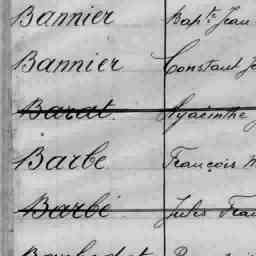 Bannier Bapte Jean
Bannier Constant J
Barat Hyacinthe
Barbe François
Barbé Jules Fran